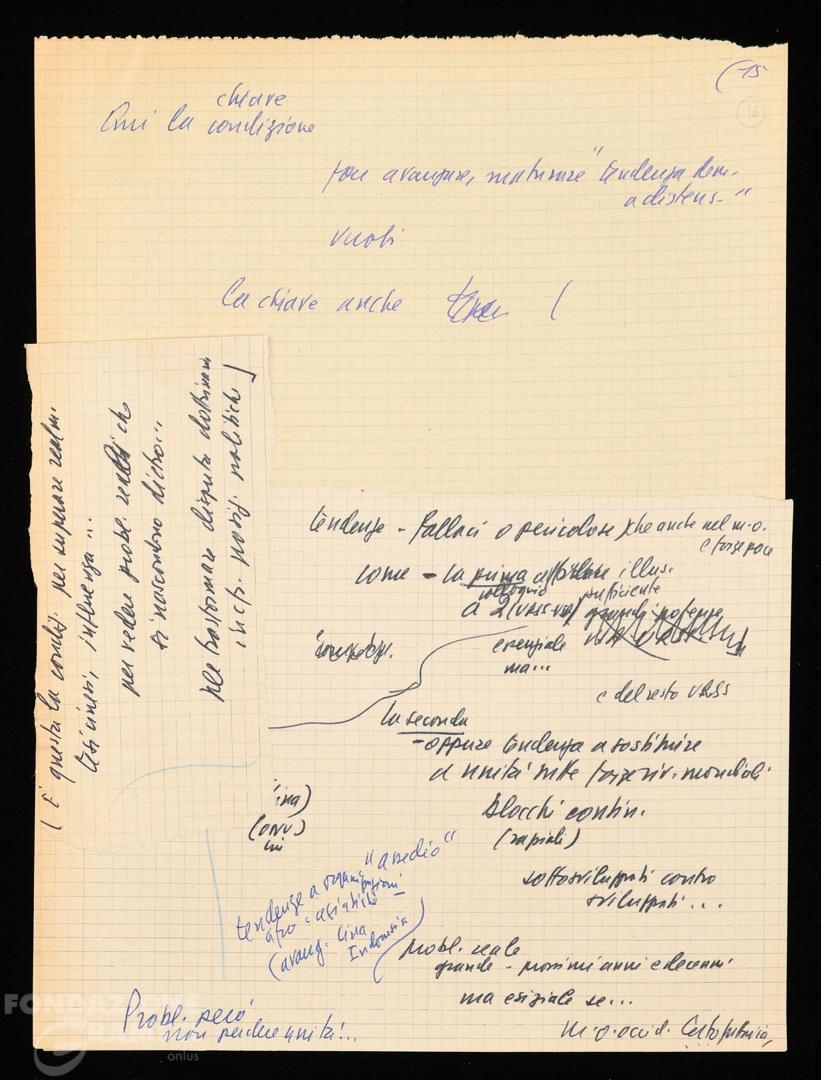 (15
16
chiave
Qui la condizione
avanzare, maturare "tendenza dem.
a distens."
vuoti
La chiave anche (
( È questa la condiz. per superare
tesi cinesi, influenza...
per vedere probl. reali che
si nascondono dietro...
per trasformare disputa dottrinaria
in politiche ]
tendenze - fallaci o pericolose anche nel m.o.
e forze pace
come - la prima illus.
colloquio sufficiente
a 2 (URSS-USA) grandi potenze
essenziale
ma...
e del resto URSS
La seconda
- oppure tendenza a sostituire
a unità tutte forze riv. mondiali
blocchi contin.
(razziali)
sottosviluppati contro
sviluppati...
(ONU)
tendenze a organizzazioni "a sedio"
afro-asiatiche
(avanz. Cina
Indonesia
probl. reale
grande - prossimi anni e decenni
ma esiziale se...
m.o. occid.
Probl. però
non perdere unità!..
FONDAZIONE
GRAMSCI
onlus